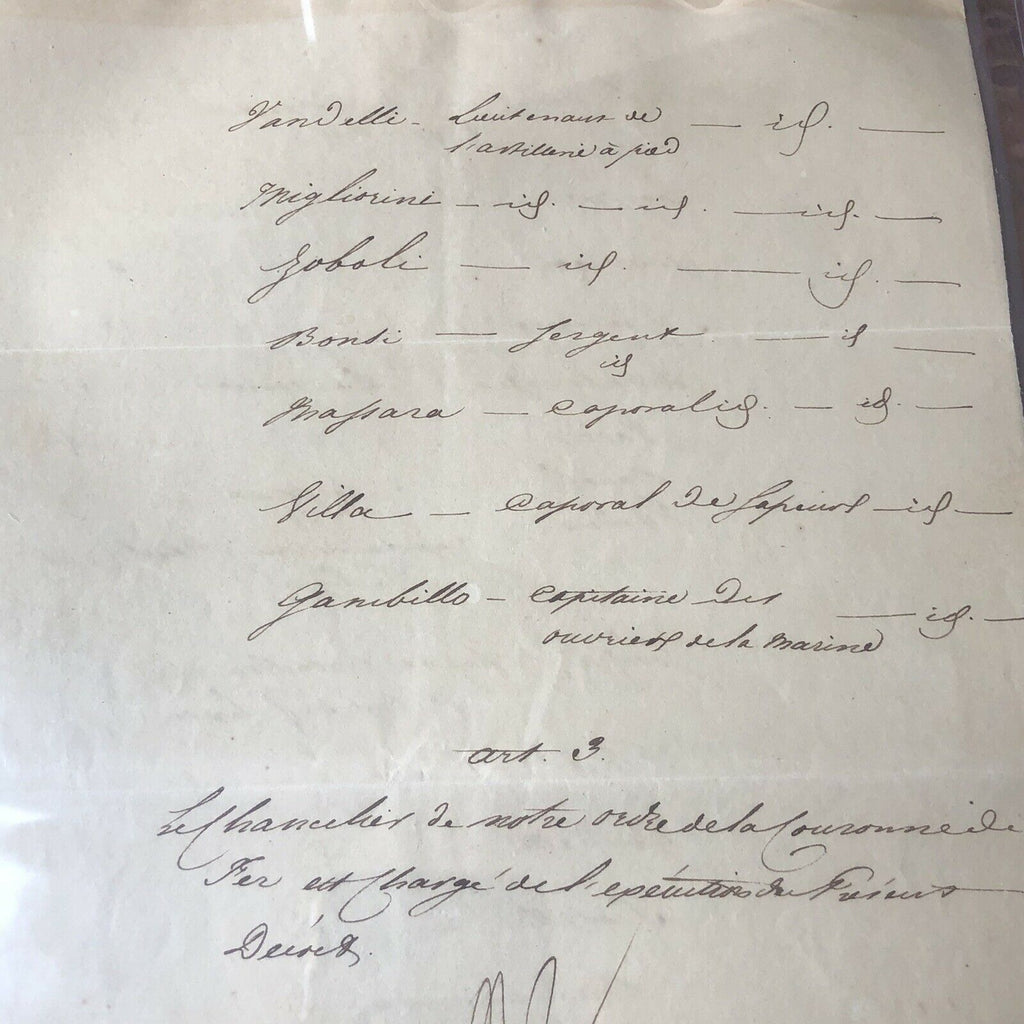 Vandelli - Lieutenant de — id. —
l'artillerie à pied
Migliorini - id. — id. — id. —
Zoboli — id. — id. —
Bonti — Sergent — id —
id
Massara — Caporal id. — id. —
Villa — Caporal de Sapeurs — id —
Gambillo - Capitaine des — id. —
ouvriers de la Marine
art. 3.
Le Chancelier de notre ordre de la Couronne de
Fer est Chargé de l'exécution du Présent
Décret.